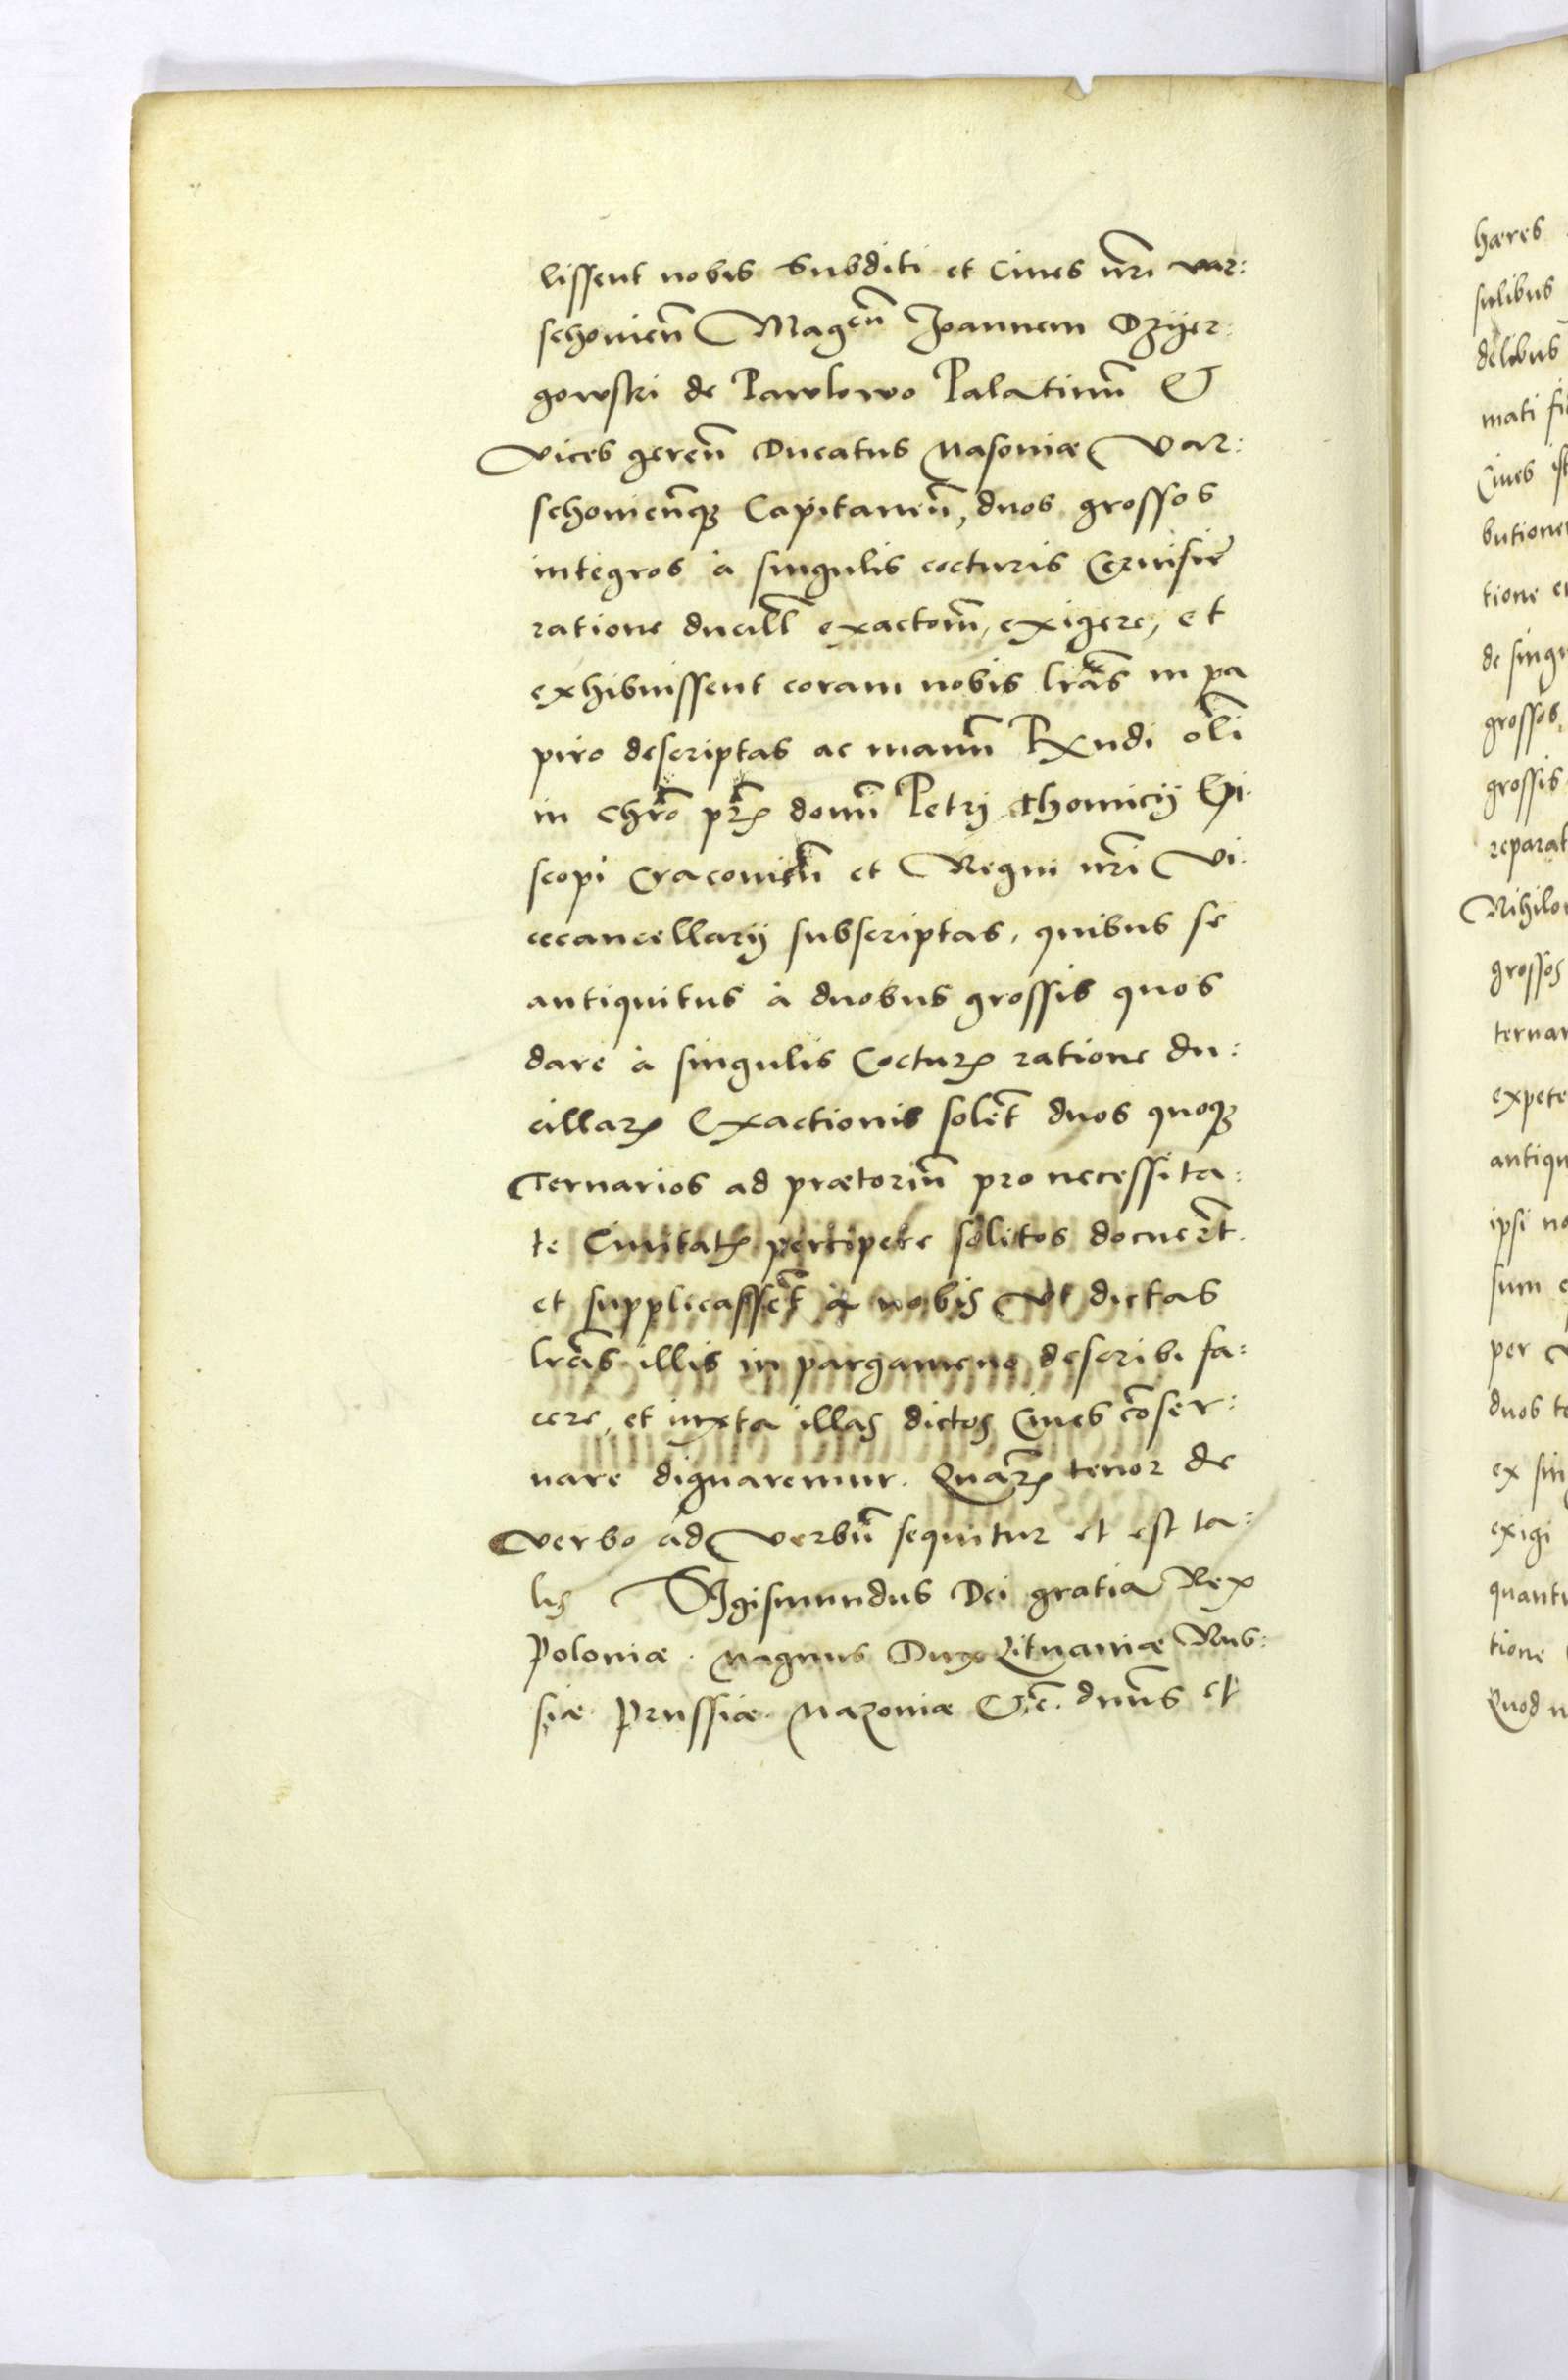 lissent nobis Subditi et Ciues nr̃i var:
schouien̄ Magcn̄ Joannem Dzyer:
gowski de Pawlowo Palatinũ &
vices geren̄ Ducatus Masoniæ Var:
schouien̄qꝫ Capitaneũ, duos grossos
integros à singulis cocturis Ceruisie
ratione ducill̄ exactorũ, exigere, et
exhibuissent coram nobis lr̃as in pa
piro descriptas ac manũ Rx̃ndi oli̅
in Chr̃o pr̃ꝫ domñ Petrj Thomicij Epi:
scopi Cracouien̄ et Regni nr̃i Vi:
cecancellarij subscriptas, quibus se
antiquitus à duobus grossis quos
dare à singulis Cocturꝫ ratione du:
cillarꝫ Exactionis solẽt duos quoqꝫ
Ternarios ad prætoriũ pro necessita:
te Ciuitatꝫ percipere solitos docuer̃t.
et supplicassẽt à nobis vt dictas
lr̃as illis in pargameno describi fa:
cere, et iuxta illas dictos Ciues cõser:
uare dignaremur. Quarꝫ tenor de
verbo ad verbũ sequitur et est ta:
lis Sigismundus Dei gratia Rex
Poloniæ. Magnus Dux Lituaniæ Rus:
siæ Prussiæ. Mazoniæ &c̃. dnũs et
hæres
sulibus
delibus
mati
Ciues
butione
tione
de singu
grossos,
grossis
reparat
Nihilo
grossos
ternar
expete
antiqu
ipsi no
sum
per
duos te
ex sin
exigi
quantu
tione
Quod